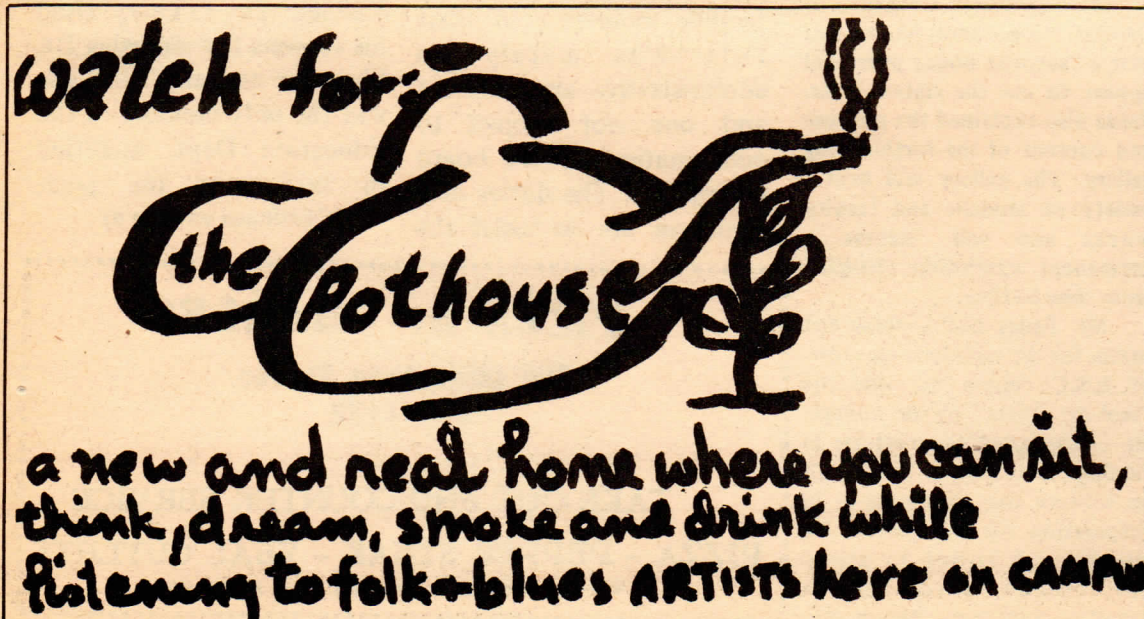 watch for:
the pothouse
a new and real home where you can sit,
think, dream, smoke and drink while
listening to folk + blues ARTISTS here on CAMPUS